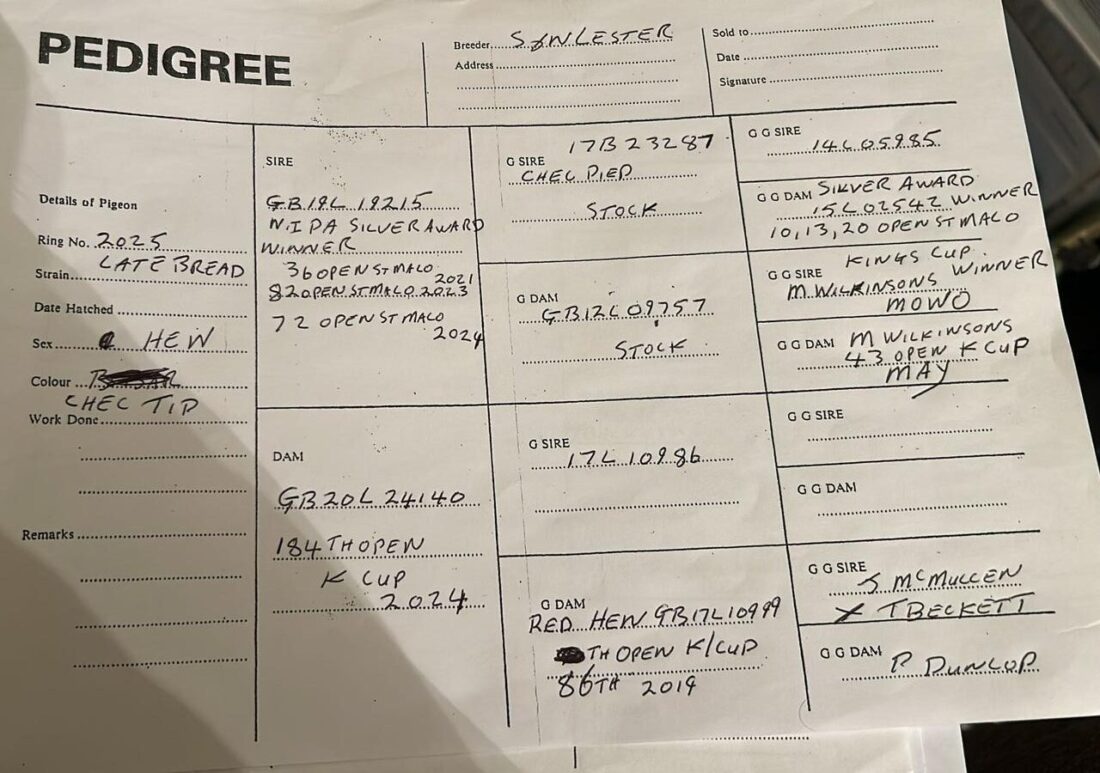 PEDIGREE
Breeder S & N LESTER
Address
Sold to
Date
Signature
Details of Pigeon
Ring No. 2025
LATE BREAD
Strain
Date Hatched
Sex HEN
Colour
CHEC TIP
Work Done
Remarks
SIRE
GB19L 19215
N.I PA SILVER AWARD
WINNER
36 OPEN ST MALO
2021
82 OPEN ST MALO 2023
72 OPEN ST MALO
2024
DAM
GB20L 24140
184 TH OPEN
K CUP
2024
17B23287
G SIRE
CHEC PIED
STOCK
G DAM
GB12L09757
STOCK
G SIRE
17L 10986
G DAM
RED HEN GB17L10999
TH OPEN K/CUP
86TH 2019
G G SIRE
14L05985
G G DAM SILVER AWARD
15L02542 WINNER
10,13,20 OPEN ST MALO
KINGS CUP
G G SIRE WINNER
M WILKINSONS
MOWO
G G DAM M WILKINSONS
43 OPEN K CUP
MAY
G G SIRE
G G DAM
G G SIRE
S McMULLEN
X T BECKETT
G G DAM
R DUNLOP